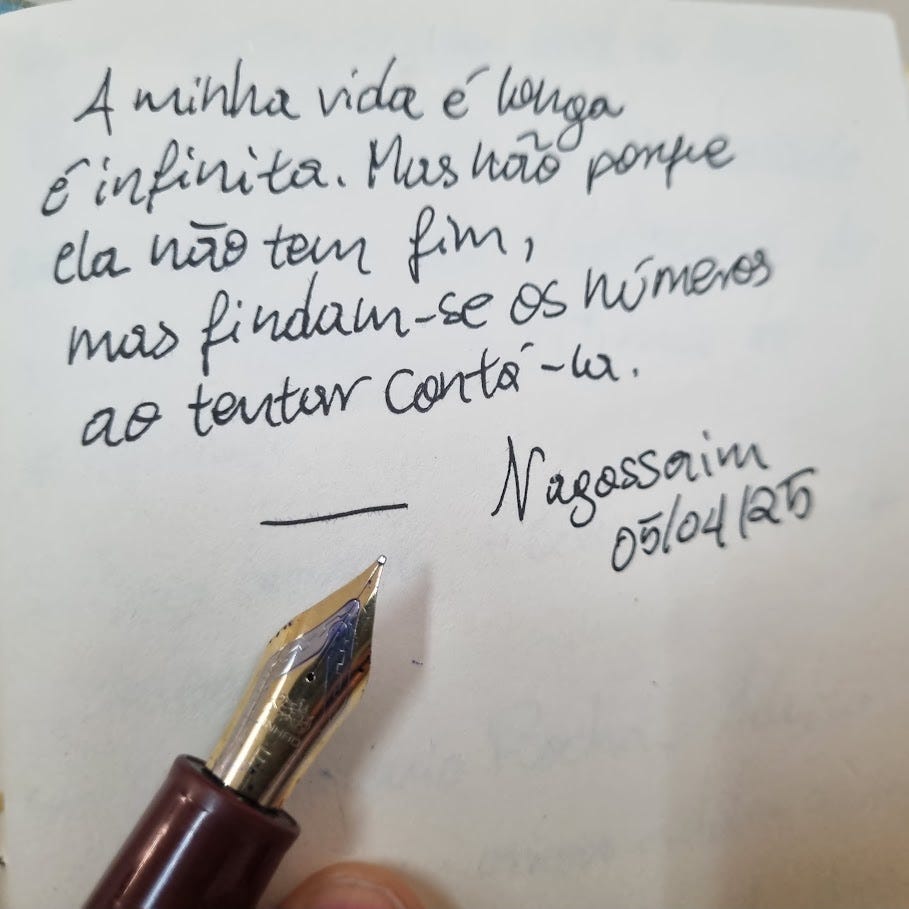 A minha vida é longa
é infinita. Mas não porque
ela não tem fim,
mas findam-se os números
ao tentar contá-la.
Nagassaim
05/04/25